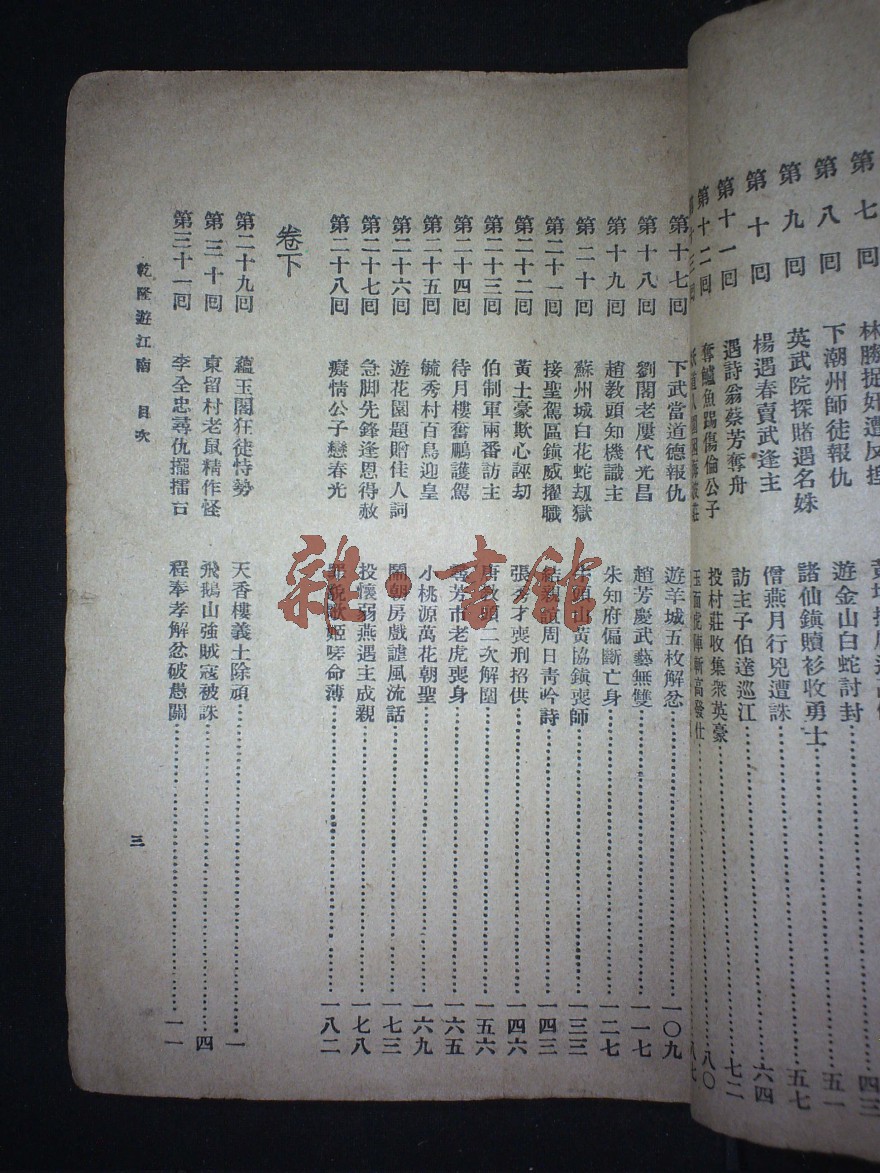 第七回 林勝捉奸遭反捏
第八回 下潮州師徒報仇 遊金山白蛇討封 五一
第九回 英武院探賭遇名姝 諸仙鎮贖衫收勇士 五七
第十回 楊遇春賣武逢主 僧燕月行兇遭誅 六四
第十一回 遇詩翁蔡芳奪舟 訪主子伯達巡江 七二
第十二回 奪鱸魚踢傷倫公子 投村莊收集衆英豪 八〇
第十七回 下武當道德報仇 遊羊城五枚解忿 一〇九
第十八回 劉閣老屢代光昌 趙芳慶武藝無雙 一一七
第十九回 趙教頭知機識主 朱知府偏斷亡身 一二七
第二十回 蘇州城白花蛇刼獄 牛頭山黃協鎮喪師 一三三
第二十一回 接聖駕區鎮威擢職 結親誼周日青吟詩 一四三
第二十二回 黃土豪欺心誣刧 張秀才喪刑招供 一四六
第二十三回 伯制軍兩番訪主 唐教頭二次解圍 一五六
第二十四回 待月樓奮鵬護駕 尋芳市老虎喪身 一六五
第二十五回 毓秀村百鳥迎皇 小桃源萬花朝聖 一六九
第二十六回 遊花園題贈佳人詞 鬧朝房戲謔風流話 一七三
第二十七回 急脚先鋒逢恩得赦 投懷弱燕遇主成親 一七八
第二十八回 癡情公子戀春光 歌姬嗟命薄 一八二
卷下
第二十九回 蘊玉閣狂徒恃勢 天香樓義士除頑 一
第三十回 東留村老鼠精作怪 飛鵝山強賊寇被誅 四
第三十一回 李全忠尋仇擺擂台 程奉孝解忿破愚關 一一
乾隆遊江南 目次
三
雜·書館